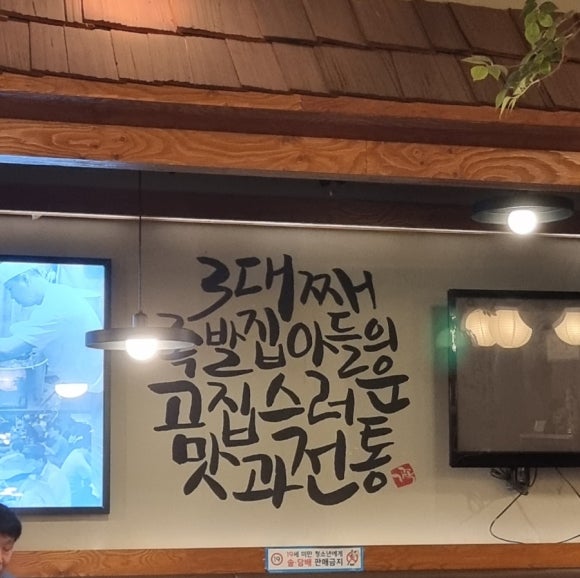 3대째
족발집아들의
고집스러운
맛과전통
19세 미만 청소년에게
술·담배 판매금지